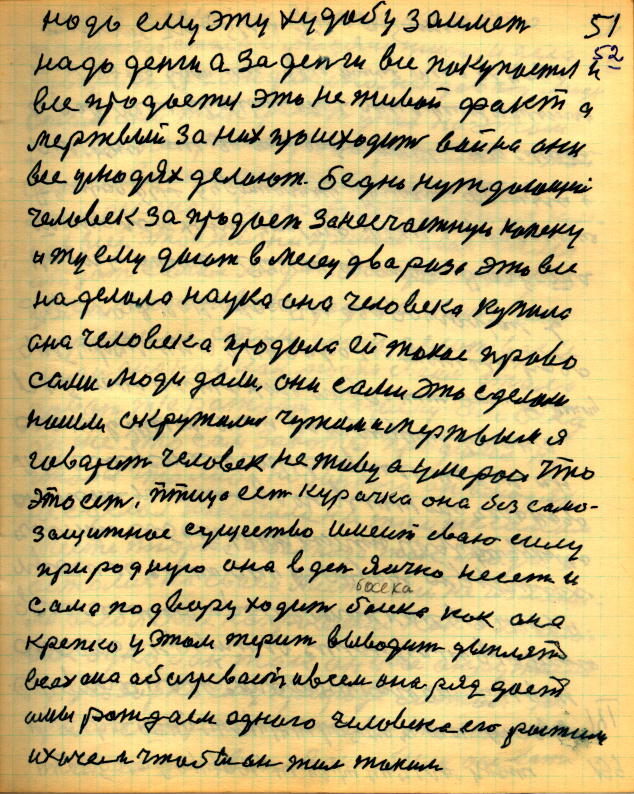 надо ему эту худобу займет 51
надо денги а за денги все покупается и 52
все продается это не живой факт а
мертвый за них происходит война они
все умодях делают. бедно нуждающий
человек за продает занесчастную копеку
и ту ему дают в месец два раза это все
наделала наука она человека купила
она человека продала ей такое право
сами люди дали, они сами это сделали
пошли окружились чужим и мертвым я
говарит человек не живу а умераю что
это сет, птица ест курачка она без само-
защитное существо имеит сваю силу
природную она в ден яичко несет и
босека
сама по двару ходит боика как она
крепко у этом терпит выводит цыплят
всех она абогреваеть и всем она ряд дает
а мы раждаем одного человека его ростим
и хочем чтобы он жил таким